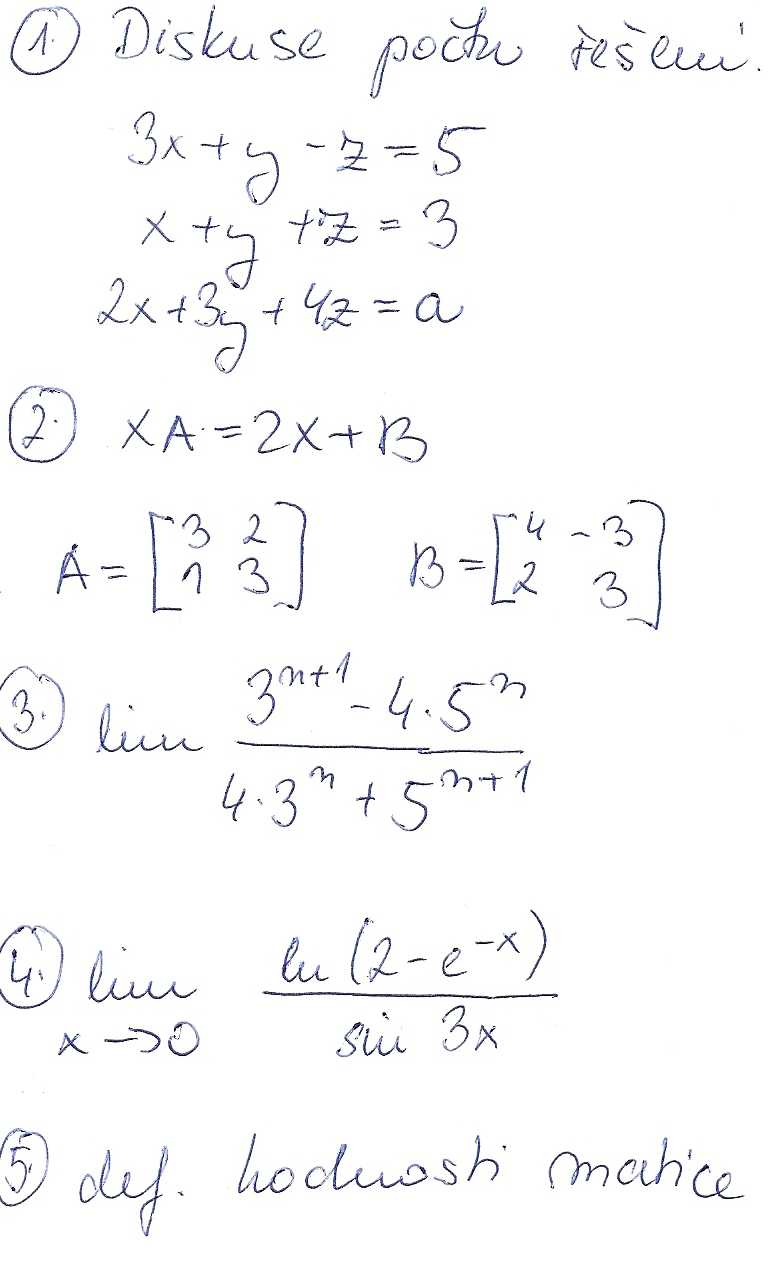 1. Diskuse počtu řešení.
3x + y - z = 5
x + y + z = 3
2x + 3y + 4z = a
2. XA = 2X + B
A = [3 2; 1 3] B = [4 -3; 2 3]
3. lim (3^(n+1) - 4·5^n) / (4·3^n + 5^(n+1))
4. lim x→0 ln(2-e^(-x)) / sin 3x
5. def. hodnosti matice